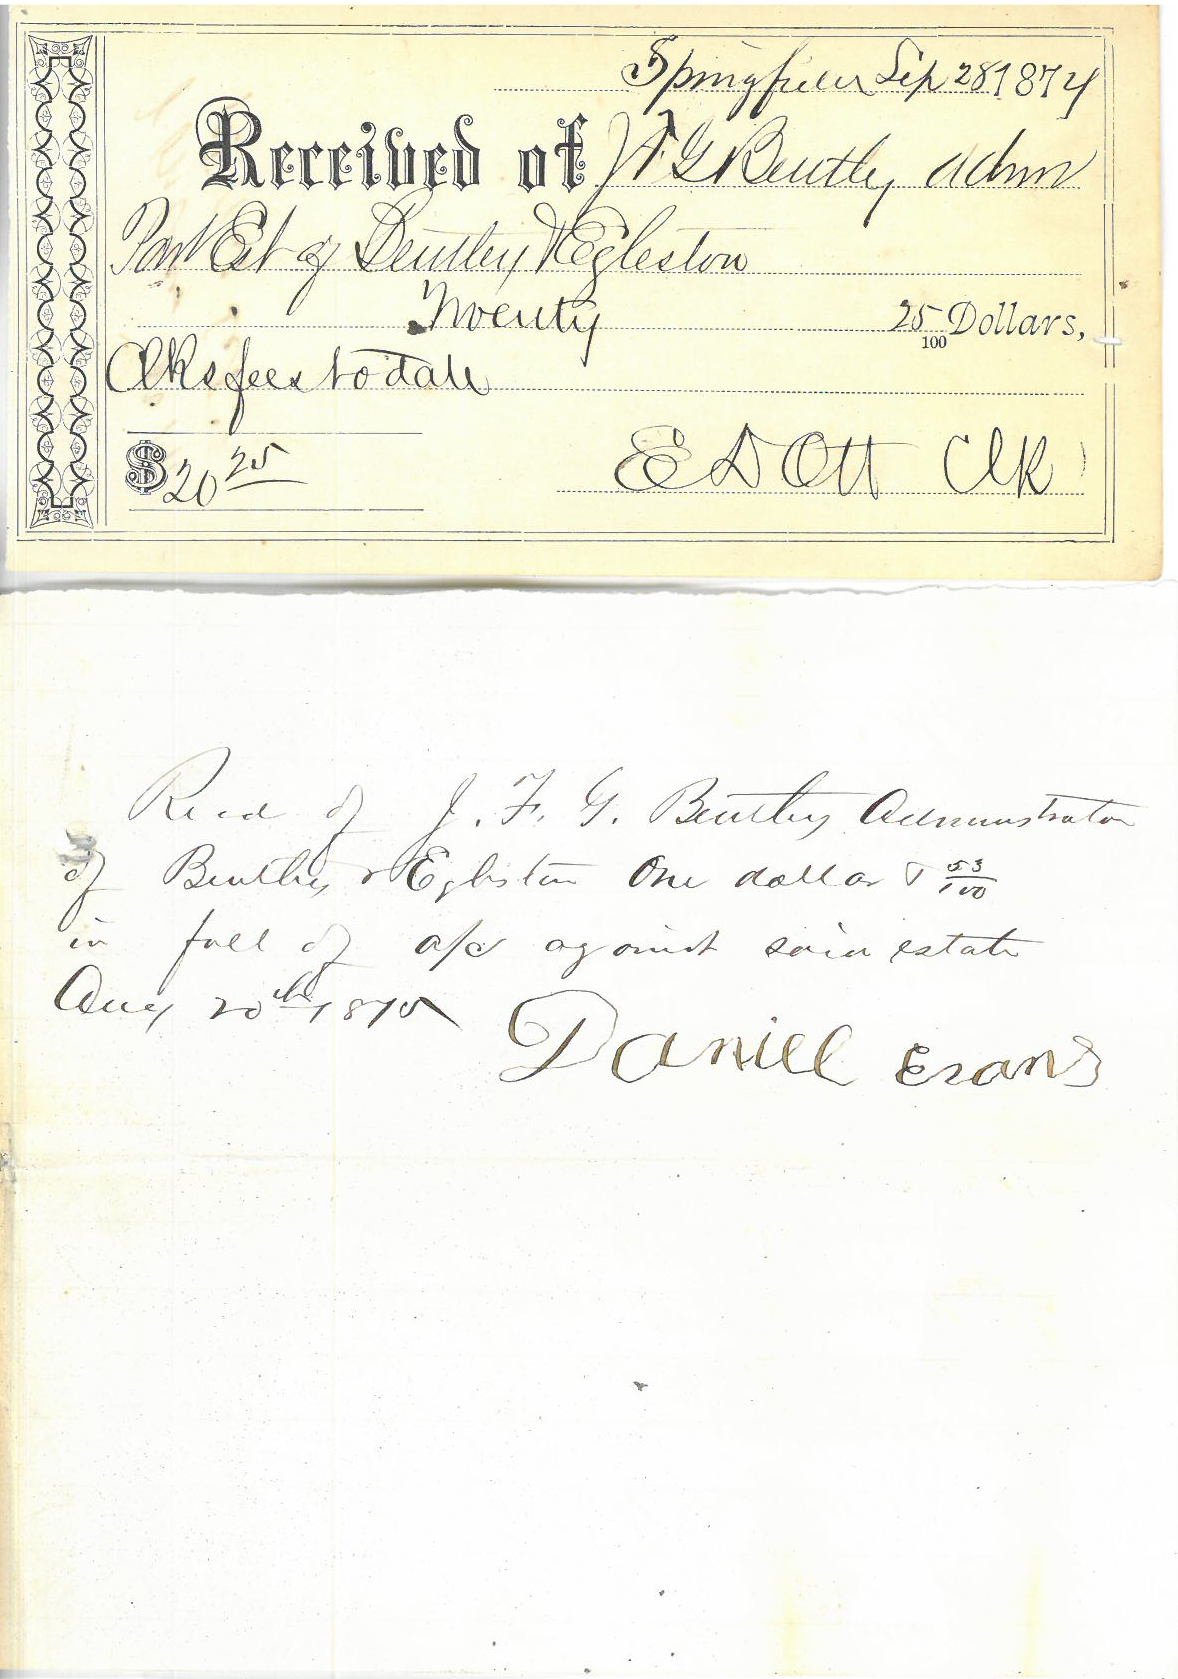 Springfield Sep 28 1874
Received of J F G Bentley Admr
Part Est of Bentley & Egleston
Twenty 25/100 Dollars,
Clks fees to date
$20 25 E D Ott Clk
Recd of J. F. G. Bentley Administrator
of Bentley & Egleston One dollar & 53/100
in full of a/c against said estate
Aug 20th 1875
Daniel Evans